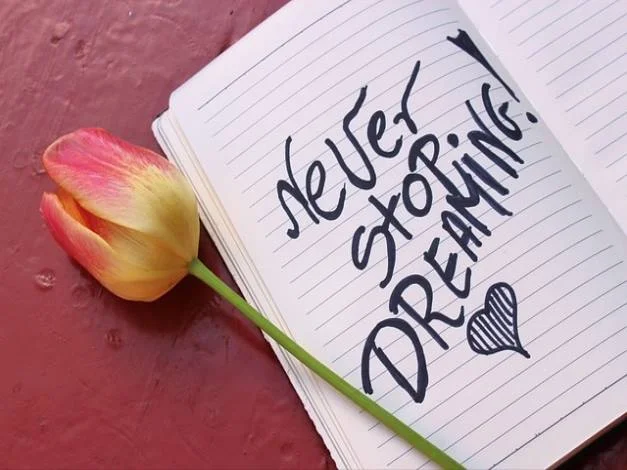 Never
STOP.
DREAMING!